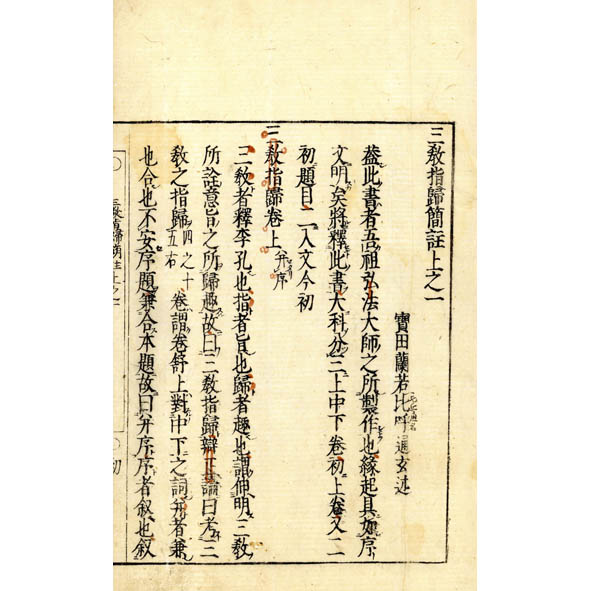 三教指歸簡註上之一
寶田蘭若比呼 通玄述
葢此書者吾祖弘法大師之所製作也緣起具如序
文明矣將釋此書大科分三上中下卷初上卷又二
初題目二入文今初
三教指歸卷上 并序
三教者釋李孔也指者旨也歸者趣也謂伸明三教
所詮意旨之所歸趣故曰三教指歸辯正論曰考三
教之指歸 四之十五右 卷謂卷舒上對中下之詞并者兼
也合也不安序題兼合本題故曰并序序者叙也叙
三教指歸簡註上之一
初